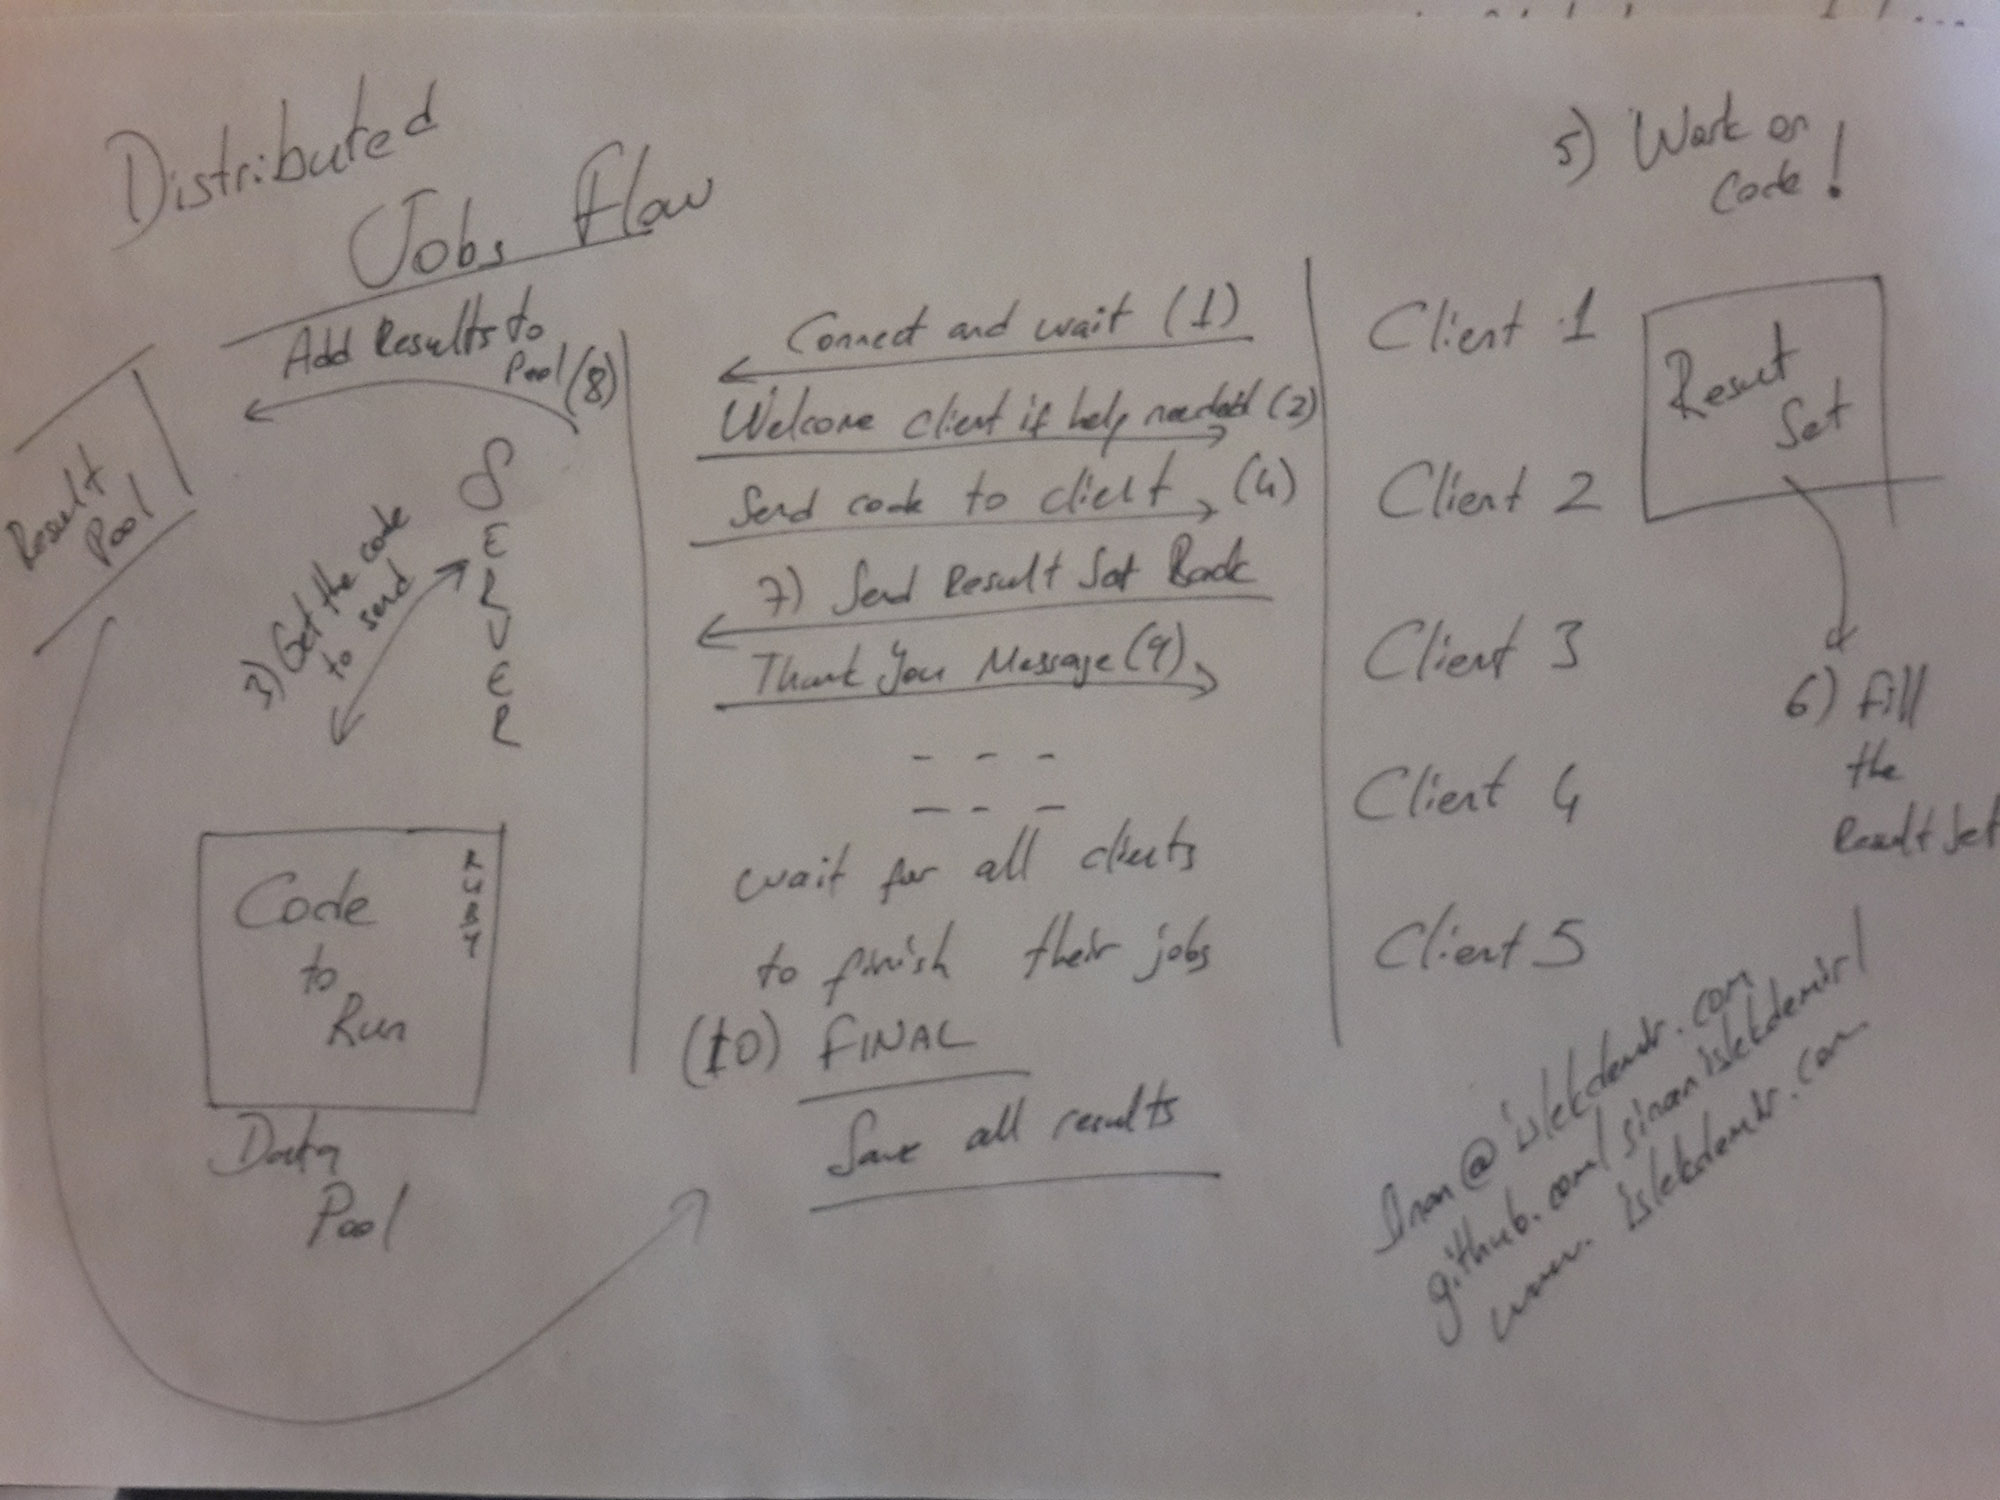 Distributed
Jobs Flow
Add Results to
Pool (8)
Result
Pool
3) Get the code
to send
SERVER
Code
to
Run
RUBY
Data
Pool
Connect and wait (1)
Welcome client if help needed (2)
Send code to client (4)
7) Send Result Set Back
Thank You Message (9)
- - -
- - -
wait for all clients
to finish their jobs
(10) FINAL
Save all results
Client 1
Client 2
Client 3
Client 4
Client 5
5) Work on
Code!
Result
Set
6) Fill
the
Result Set
sinan@islekdemir.com
github.com/sinanislekdemir/
www.islekdemir.com